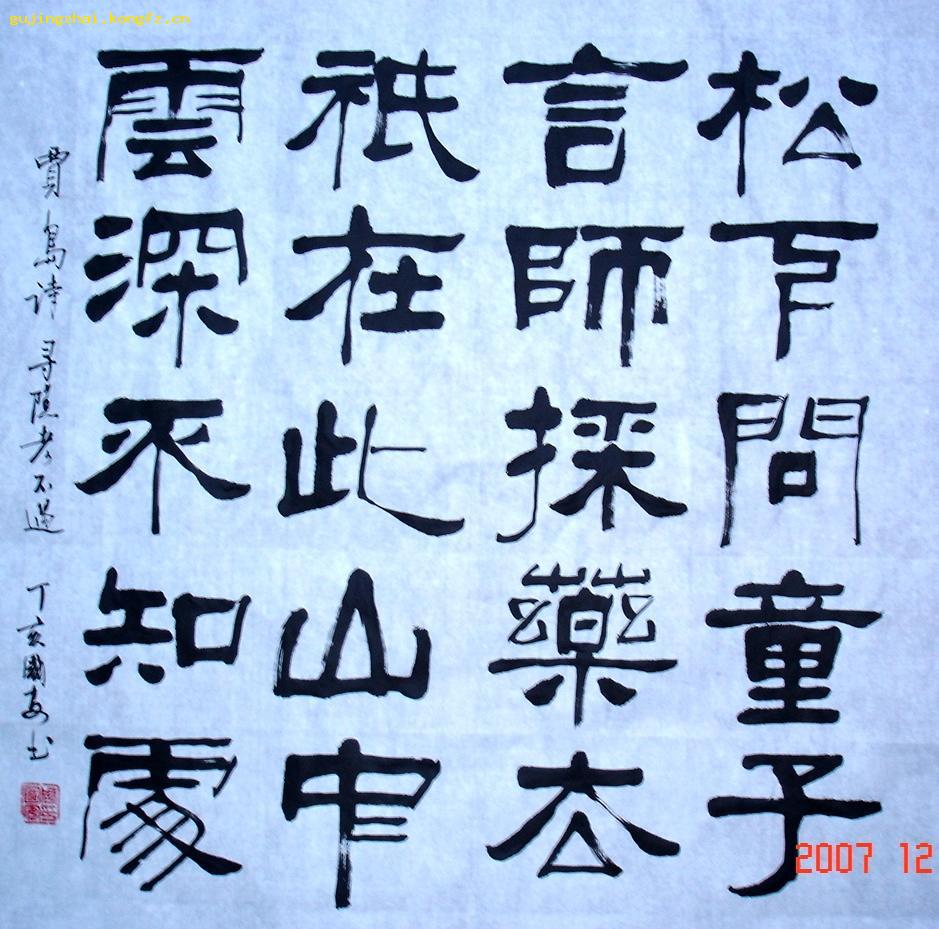 gujingzhai.kongfz.cn
松下問童子
言師採藥去
祇在此山中
雲深不知處
賈島诗 寻隐者不遇 丁亥國安书
2007 12